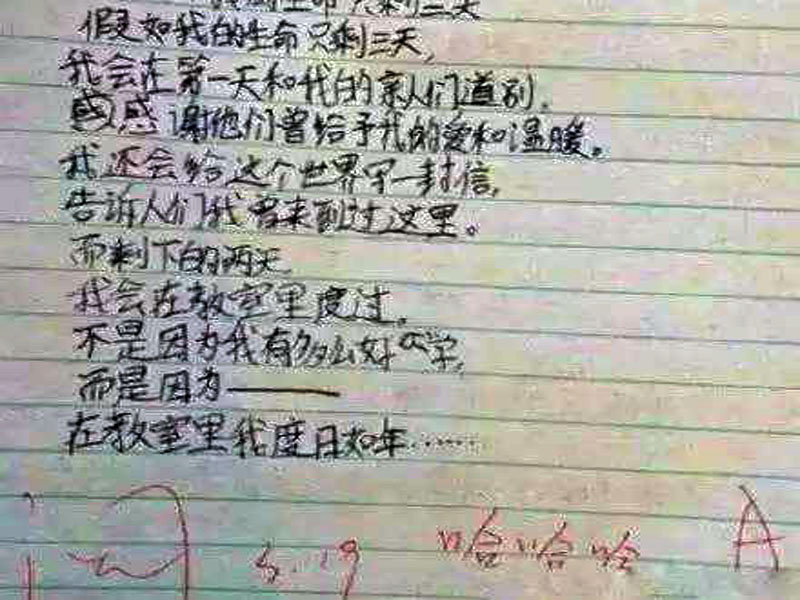 生命只剩三天
假如我的生命只剩三天,
我会在第一天和我的亲人们道别,
感感谢他们曾给予我的爱和温暖。
我还会给这个世界写一封信,
告诉人们我曾来到过这里。
而剩下的两天
我会在教室里度过,
不是因为我有多么好学,
而是因为——
在教室里我度日如年……
5.19 哈哈哈 A